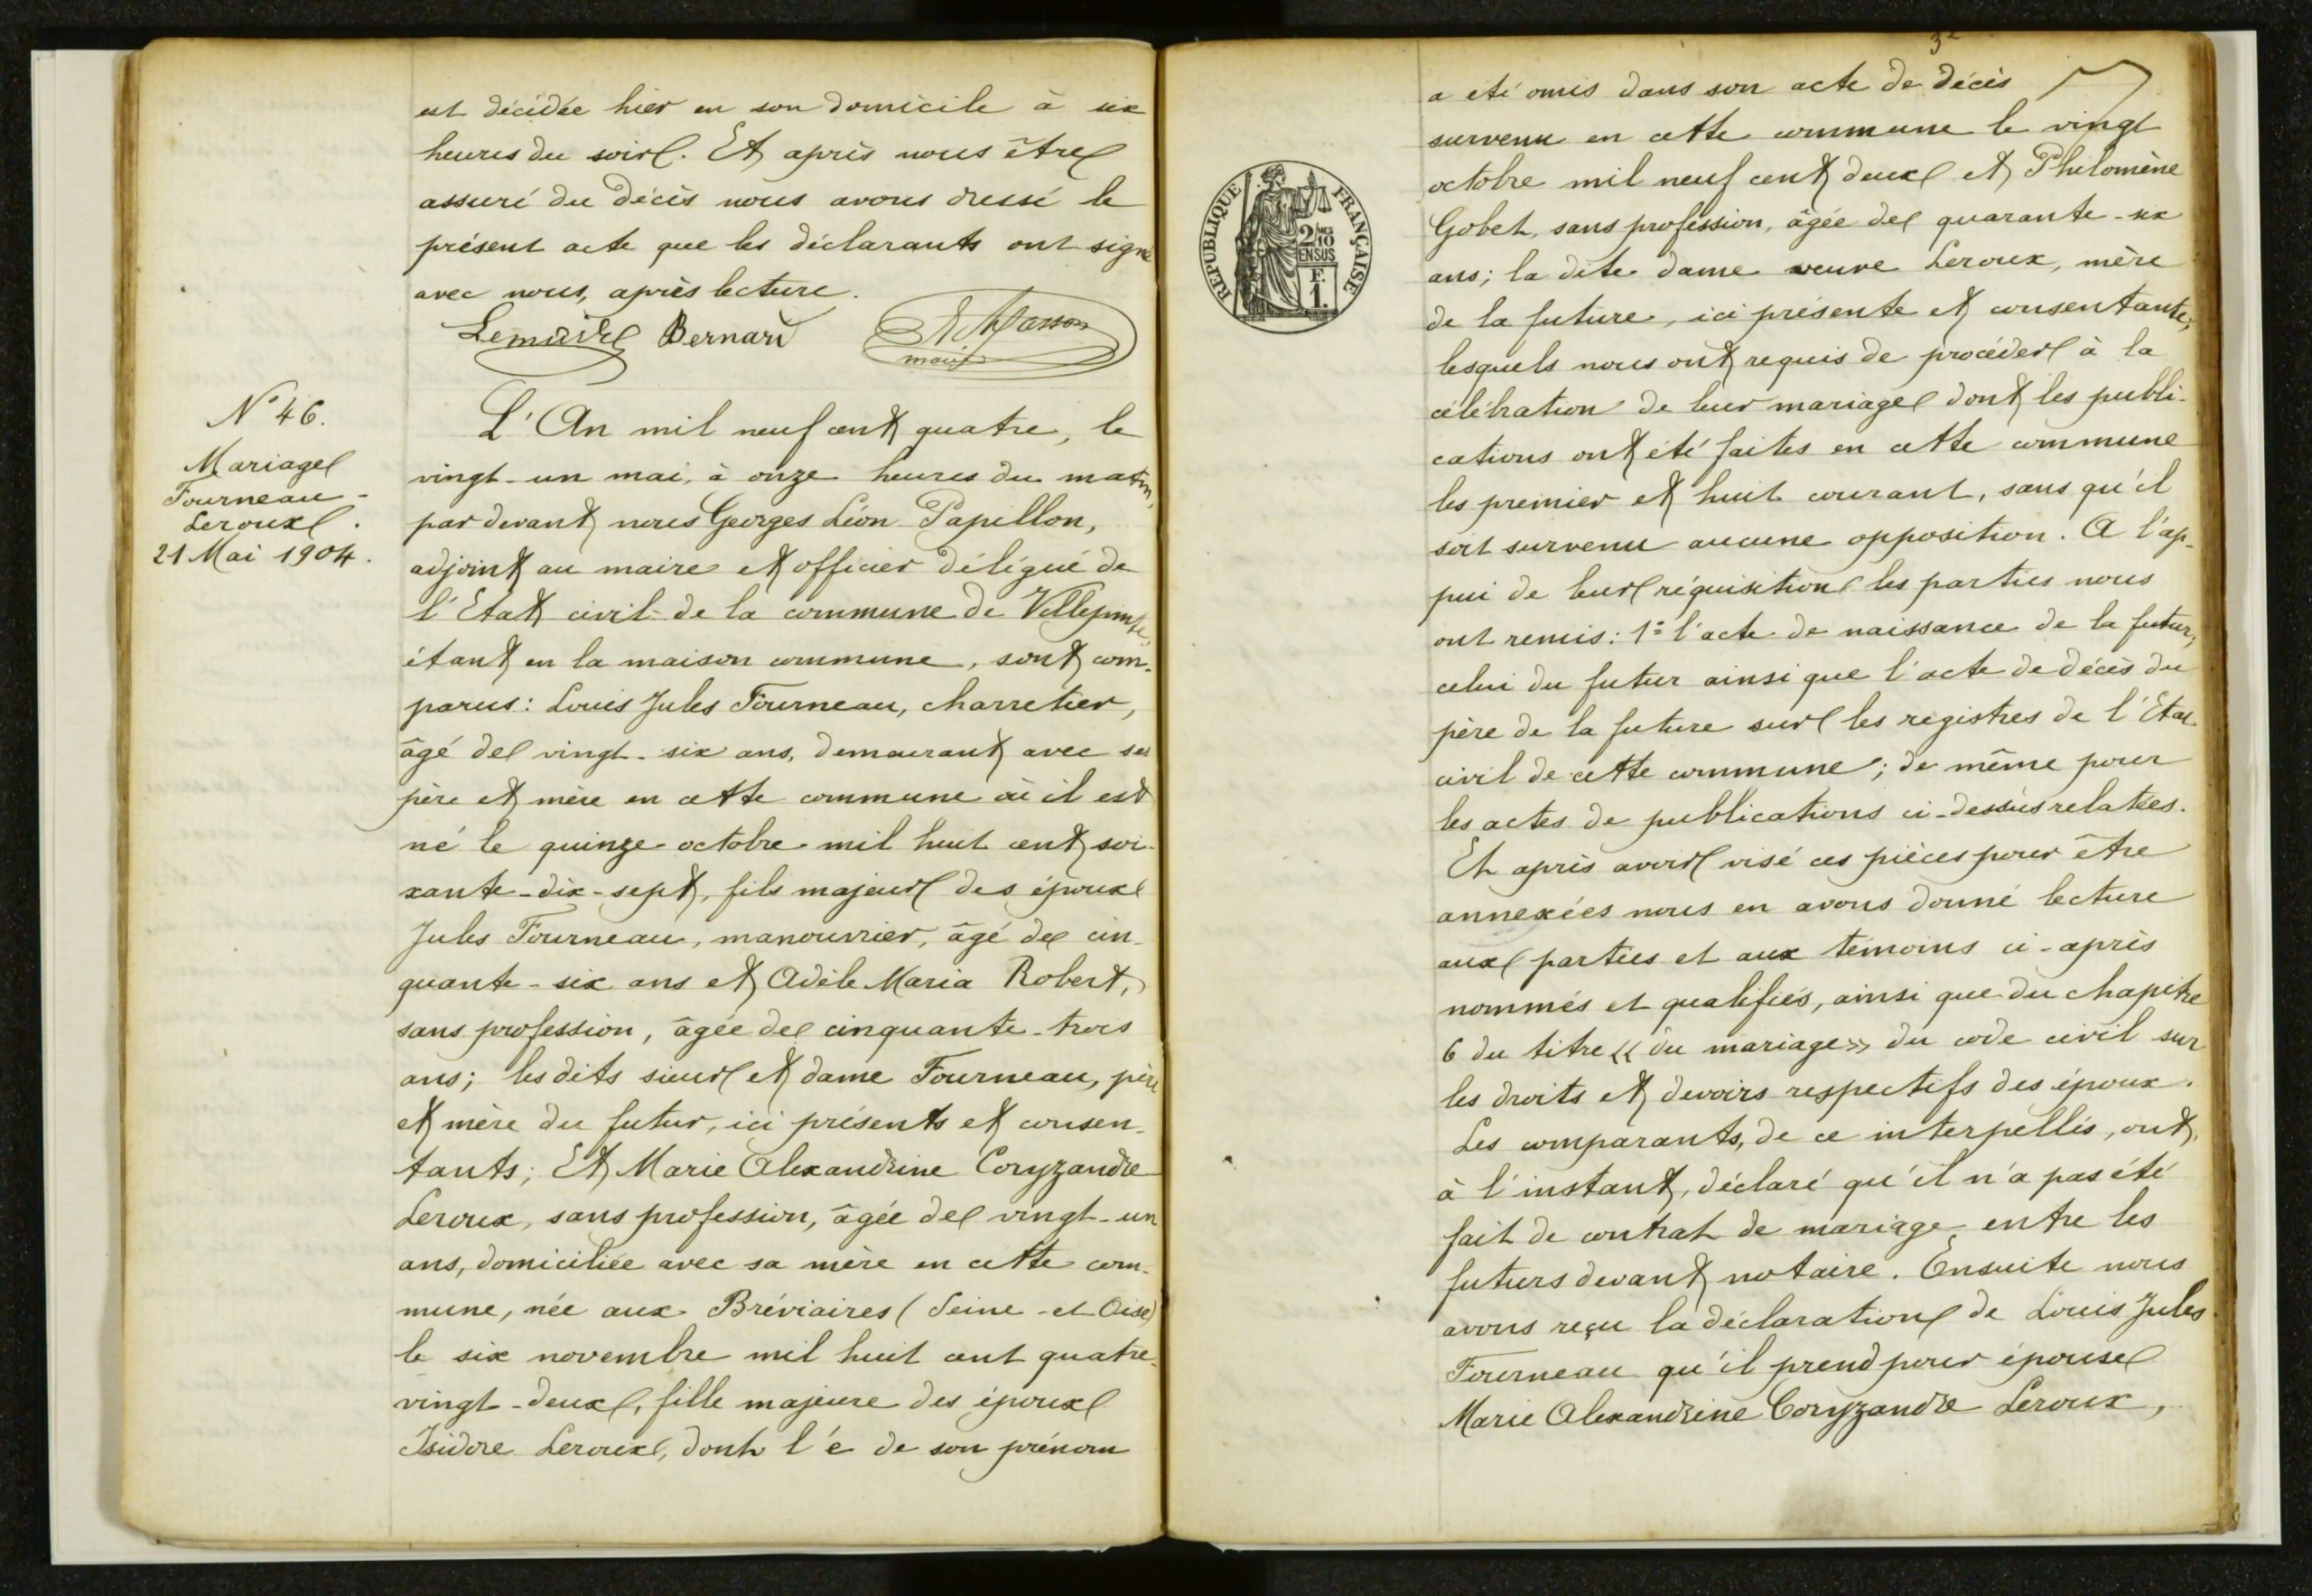 est décédée hier en son domicile à six
heures du soir. Et après nous être
assuré du décès nous avons dressé le
présent acte que les déclarants ont signé
avec nous, après lecture.
Lemaire Bernard
maire
N° 46.
Mariage
Fourneau -
Leroux.
21 Mai 1904.
L'An mil neuf cent quatre, le
vingt-un mai, à onze heures du matin,
par devant nous Georges Léon Papillon,
adjoint au maire et officier délégué de
l'Etat civil de la commune de
étant en la maison commune, sont com-
parus: Louis Jules Fourneau, charretier,
âgé de vingt-six ans, demeurant avec ses
père et mère en cette commune où il est
né le quinze octobre mil huit cent soi-
xante-dix-sept, fils majeur des époux
Jules Fourneau, manouvrier, âgé de cin-
quante-six ans et Adèle Maria Robert,
sans profession, âgée de cinquante-trois
ans; les dits sieur et dame Fourneau, père
et mère du futur, ici présents et consen-
tants; Et Marie Alexandrine Coryzandre
Leroux, sans profession, âgée de vingt-un
ans, domiciliée avec sa mère en cette com-
mune, née aux Bréviaires (Seine-et Oise)
le six novembre mil huit cent quatre-
vingt-deux, fille majeure des époux
Isidore Leroux, dont l'e de son prénom
32
RÉPUBLIQUE FRANÇAISE
2/10 MES
EN SUS
F.
1.
a eté omis dans son acte de décès
survenu en cette commune le vingt
octobre mil neuf cent deux et Philomène
Gobet, sans profession, âgée de quarante-six
ans; la dite dame veuve Leroux, mère
de la future, ici présente et consentante;
lesquels nous ont requis de procéder à la
célébration de leur mariage dont les publi-
cations ont été faites en cette commune
les premier et huit courant, sans qu'il
soit survenu aucune opposition. A l'ap-
pui de leur réquisition les parties nous
ont remis: 1° l'acte de naissance de la future,
celui du futur ainsi que l'acte de décès du
père de la future sur les registres de l'Etat
civil de cette commune; de même pour
les actes de publications ci-dessus relatées.
Et après avoir visé ces pièces pour être
annexées nous en avons donné lecture
aux parties et aux témoins ci-après
nommés et qualifiés, ainsi que du chapitre
6 du titre « du mariage » du code civil sur
les droits et devoirs respectifs des époux.
Les comparants, de ce interpellés, ont,
à l'instant, déclaré qu'il n'a pas été
fait de contrat de mariage entre les
futurs devant notaire. Ensuite nous
avons reçu la déclaration de Louis Jules
Fourneau qu'il prend pour épouse
Marie Alexandrine Coryzandre Leroux,